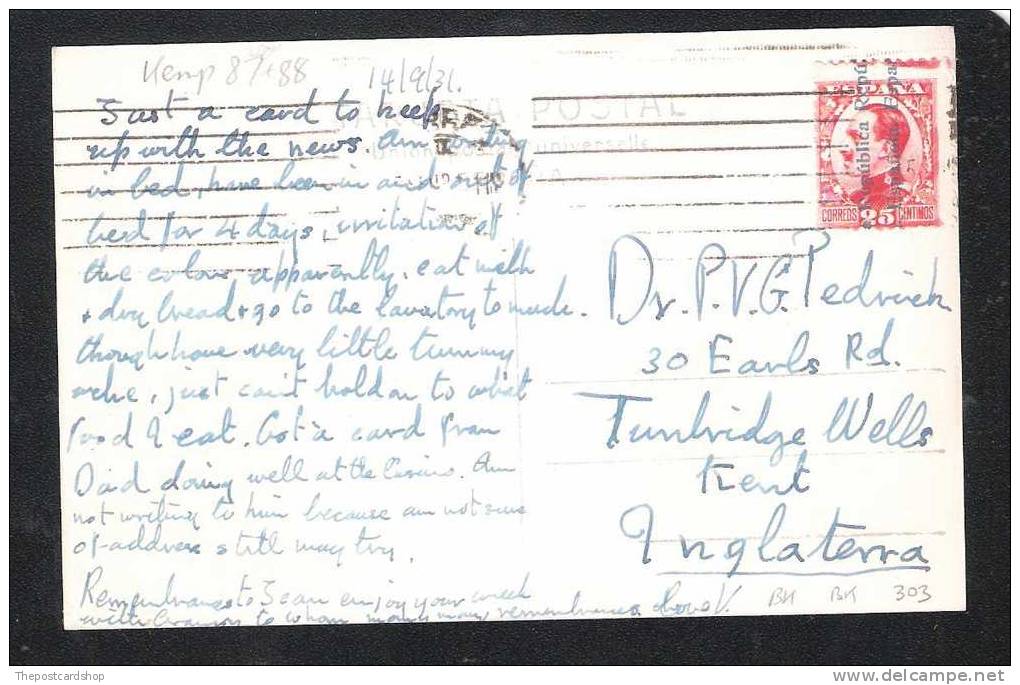 Kemp 87+88
14/9/31.
Just a card to keep
up with the news. Am writing
in bed, have been in and out of
bed for 4 days, irritation of
the colon apparently. eat milk
+ dry bread + go to the lavatory to much.
though have very little tummy
ache, just can't hold on to what
food I eat. Got a card from
Dad doing well at the Casino. Am
not writing to him because am not sure
of address still may try.
Remembrances to Jean enjoy your week
with to whom many many remembrances. Love V.
TARJETA POSTAL
Union universelle
ESPAÑA
República
CORREOS 25 CENTIMOS
Dr. P.V.G. Pedrick
30 Earls Rd.
Tunbridge Wells
Kent
Inglaterra
BH BH 303
Thepostcardshop
www.delcampe.net